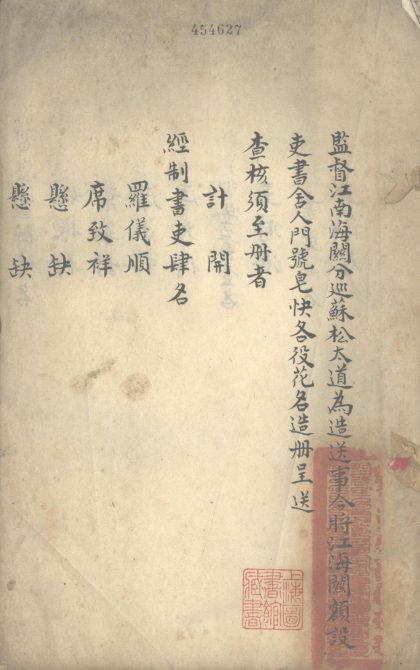 454627
監督江南海關分巡蘇松太道為造送事今將江海關額設
吏書舍人門號皂快各役花名造冊呈送
查核須至冊者
計開
經制書吏肆名
羅儀順
席致祥
懸缺
懸缺